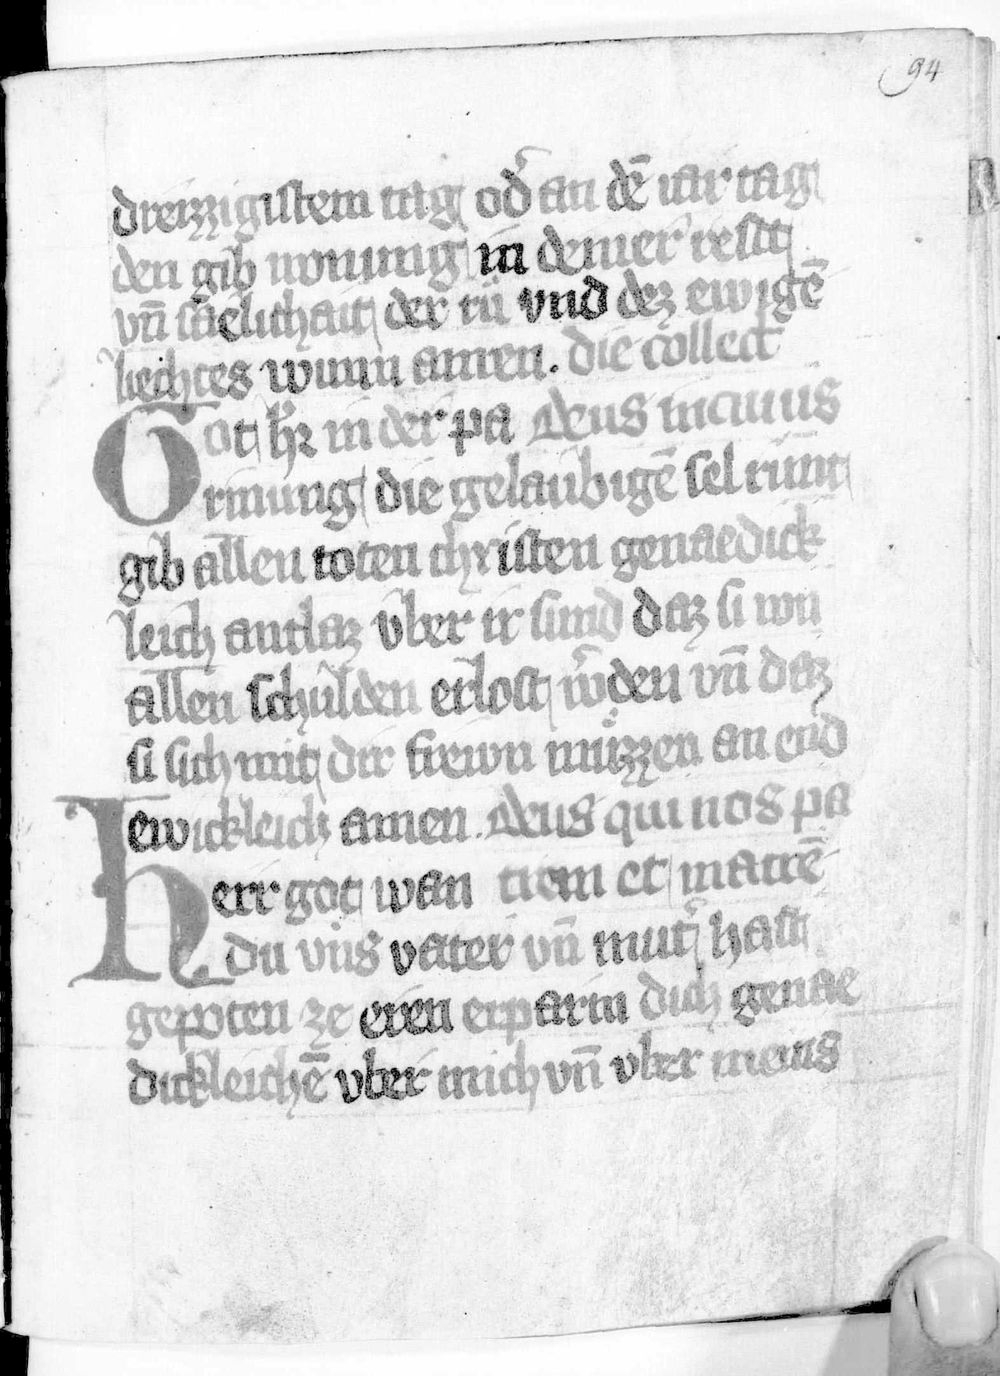 94
dreizzigistem tag od̾ an dē iar tag
den gib wonung in deiner restt
vn̄ saelichait der rů vnd dez ewigē
liechtes wunn amen. die collect
Got h̾r in der pa Deus in cuius
rmung die gelaubigē sel růnt
gib allen toten christen genaedick
leich antlaz v̊ber ir sund daz si von
allen schulden erlost w̾den vn̄ daz
si sich mit dir frewn můzzen an end
ewickleich amen. Deus qui nos pa
herr got wan trem et matrē
du vns vater vn̄ mut̾ hast
gepoten ze eren erparm dich genae
dickleichē vber mich vn̄ vber meins